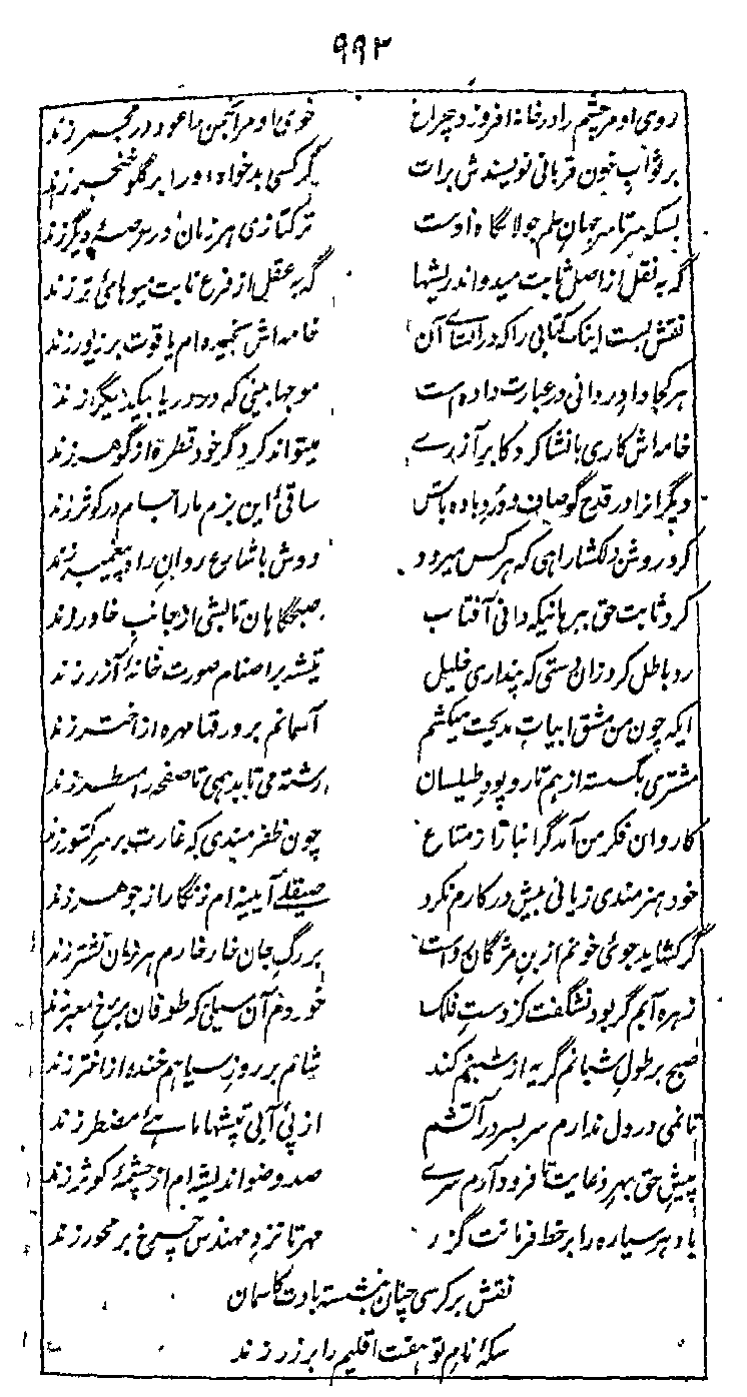 ۹۹۳
روی او مر چشم را در خانه افروزد چراغ خوی او مر انجمن را عود در مجمر زند
بر ثواب خون قربانی نویسندش برات گر کسی بدخواه او را بر گلو خنجر زند
بسکه سرتاسر جهان علم جولانگاه اوست ترکتازی هر زمان در عرصهٔ دیگر زند
گر به نقل از اصل ثابت میدواند ریشها گه به عقل از فرع نابت میوهای تر زند
نقش بست اینک کتابی را که در اثنای آن خامه اش سنجیده ام یاقوت بر زیور زند
هر کجا داد روانی در عبارت داده است موجها بینی که در دریا بیکدیگر زند
خامه اش کاری بانشا کرد کابر آزری میتواند کرد گر خود قطره از گوهر زند
دیگرانرا در قدح گو صاف و درد باده باش ساقی این بزم ما را جام در کوثر زند
کرد روشن دلکشا راهی که هر کس میرود دوش با شارع روان راه پیغمبر زند
کرد ثابت حق ببرهانیکه دانی آفتاب صبحگاهان تابشی از جانب خاور زند
رد باطل کرد زان دستی که پنداری خلیل تیشه بر اصنام صورت خانهٔ آزر زند
ایکه چون من مشق ابیات مدیحت میکشم آسمانم بر ورقها مهره از اختر زند
مشتری بگسسته از هم تار و پود طیلسان رشته می تابد همی تا صفحه را مسطر زند
کاروان فکر من آمد گرانبار از متاع چون ظفرمندی که غارت بر سر کشور زند
خود هنرمندی زیانی بیش در کارم نکرد صیقلے آیینه ام زنگار از جوهر زند
گر کشاید جوی خونم از بن مژگان رواست بر رگ جان خار خارم هر زمان نشتر زند
زهره آبم گر بود نشگفت کز دست فلک خوردم آن سیلی که طوفان بر رخ معبر زند
صبح بر طول شبانم گریه از شبنم کند شام بر روز سیاهم خنده از اختر زند
تا نمی در دل ندارم سر بسر در آتشم از پی آبی تپشها ماهیٔ مضطر زند
پیش حق بهر دعایت تا فرود آرم سری صد وضو اندیشه ام از چشمهٔ کوثر زند
باد هر سیاره را بر خط فرمانت گزر مهر تا نزد مهندس چرخ بر محور زند
نقش بر کرسی چنان بنشسته بادت کاسمان
سکهٔ نام تو هفت اقلیم را بر زر زند